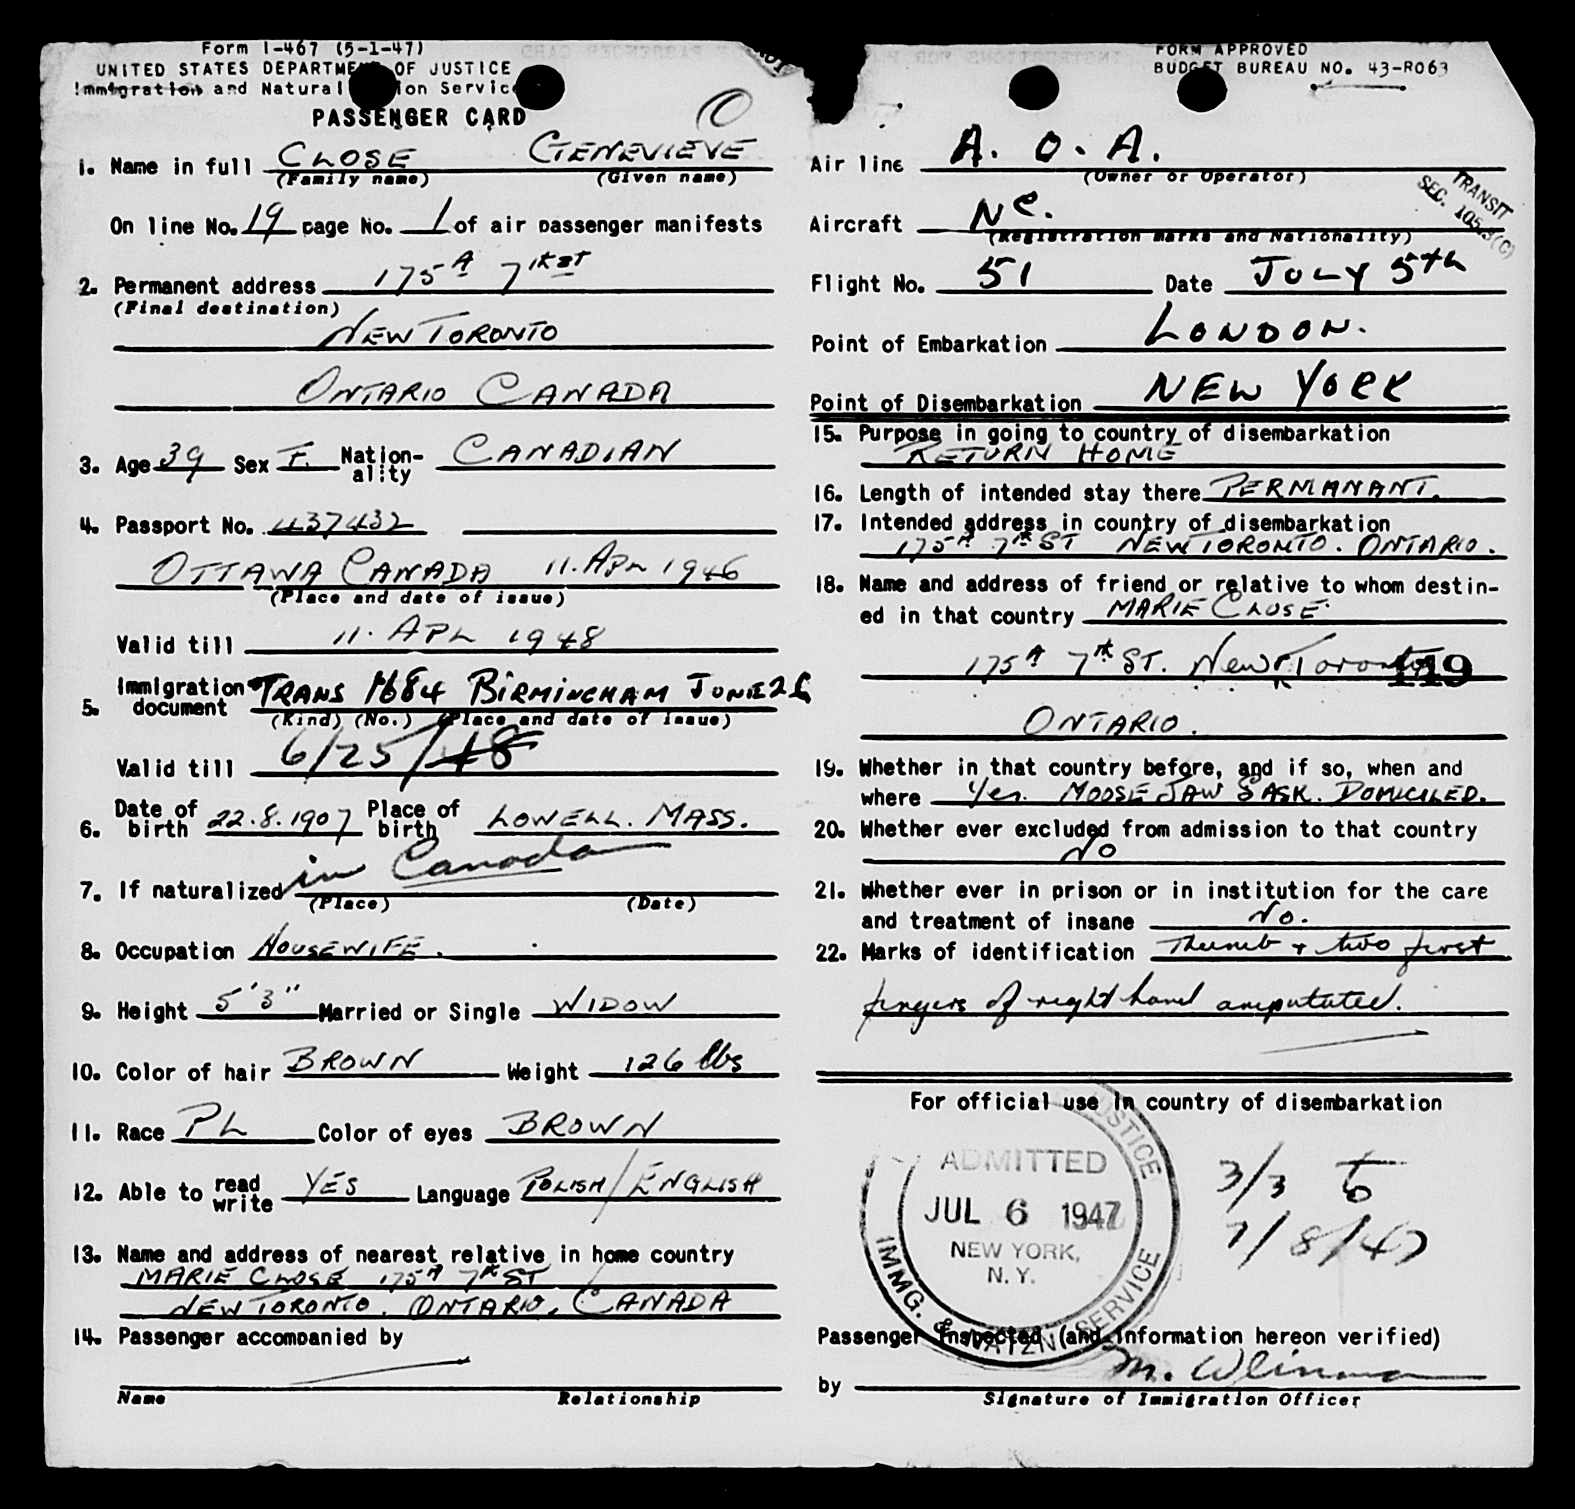 Form I-467 (5-1-47)
UNITED STATES DEPARTMENT OF JUSTICE
Immigration and Naturalization Service
PASSENGER CARD
1. Name in full CLOSE GENEVIEVE
(Family name) (Given name)
On line No. 19 page No. 1 of air passenger manifests
2. Permanent address 175A 7th ST
(Final destination)
NEW TORONTO
ONTARIO CANADA
3. Age 39 Sex F. Nation-ality CANADIAN
4. Passport No. 437432
OTTAWA CANADA 11. APL 1946
(Place and date of issue)
Valid till 11. APL 1948
5. Immigration document TRANS 1684 BIRMINGHAM JUNE 26
(Kind) (No.) (Place and date of issue)
Valid till 6/25/48
6. Date of birth 22.8.1907 Place of birth LOWELL. MASS.
7. If naturalized in Canada
(Place) (Date)
8. Occupation HOUSEWIFE.
9. Height 5'3" Married or Single WIDOW
10. Color of hair BROWN Weight 126 lbs
11. Race PL Color of eyes BROWN
12. Able to read write YES Language POLISH/ENGLISH
13. Name and address of nearest relative in home country
MARIE CLOSE 175A 7th ST
NEW TORONTO. ONTARIO. CANADA
14. Passenger accompanied by
Name Relationship
FORM APPROVED
BUDGET BUREAU NO. 43-R063
Air line A. O. A.
(Owner or Operator)
TRANSIT
SEC. 105.3(C)
Aircraft NC.
(Registration marks and Nationality)
Flight No. 51 Date JULY 5th
Point of Embarkation LONDON.
Point of Disembarkation NEW YORK
15. Purpose in going to country of disembarkation
RETURN HOME
16. Length of intended stay there PERMANANT.
17. Intended address in country of disembarkation
175A 7th ST NEW TORONTO. ONTARIO.
18. Name and address of friend or relative to whom destin-
ed in that country MARIE CLOSE.
175A 7th ST. New Toronto
ONTARIO.
19. Whether in that country before, and if so, when and
where Yes. MOOSE JAW SASK. DOMICILED.
20. Whether ever excluded from admission to that country
NO
21. Whether ever in prison or in institution for the care
and treatment of insane No.
22. Marks of identification Thumb + two first
fingers of right hand amputated.
For official use in country of disembarkation
JUSTICE
ADMITTED
JUL 6 1947
NEW YORK,
N. Y.
IMMG. & NATZN. SERVICE
3/3 to
7/8/47
Passenger Inspected (and Information hereon verified)
by
Signature of Immigration Officer